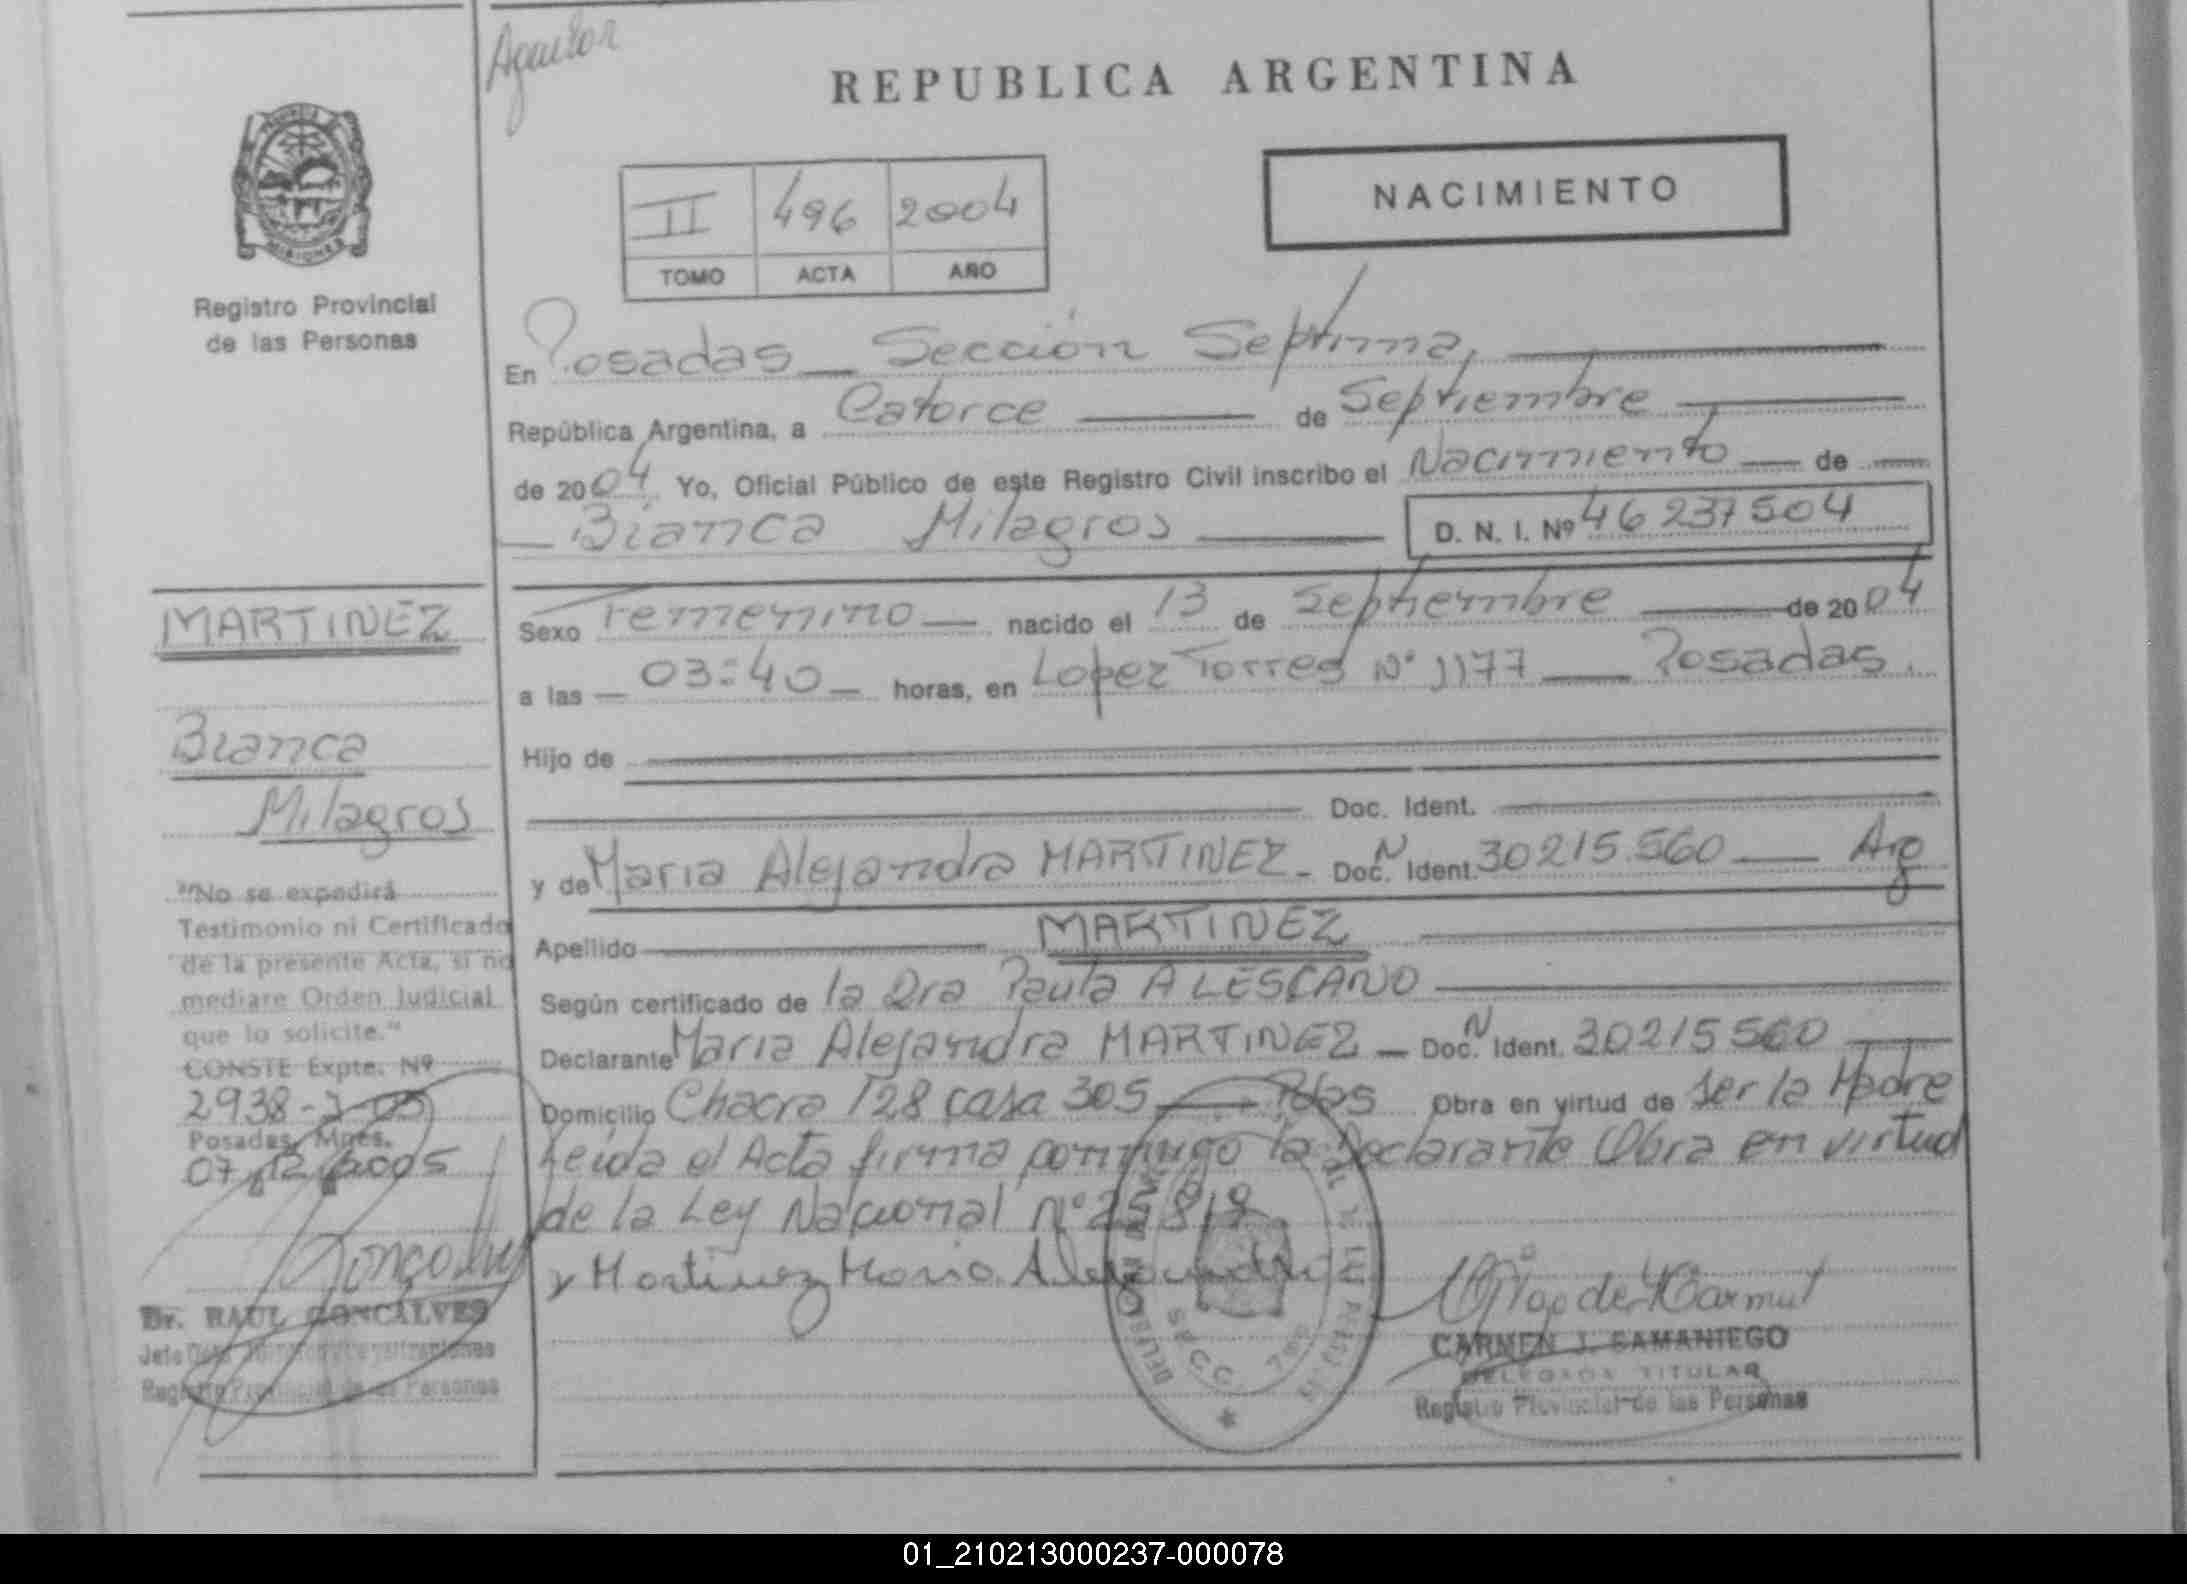 Aguilar
REPUBLICA ARGENTINA
II 496 2004
TOMO ACTA AÑO
NACIMIENTO
MISIONES
Registro Provincial
de las Personas
En Posadas Sección Septima,
República Argentina, a Catorce de Septiembre
de 2004 Yo, Oficial Público de este Registro Civil inscribo el Nacimiento de
Bianca Milagros D. N. I. Nº 46237504
Sexo Femenino nacido el 13 de Septiembre de 2004
a las 03:40 horas, en Lopez Torres Nº 1177 Posadas.
Hijo de
Doc. Ident.
y de Maria Alejandra MARTINEZ - Doc. N Ident. 30215.560 Arg
Apellido MARTINEZ
Según certificado de la Dra Paula A LESCANO
Declarante Maria Alejandra MARTINEZ - Doc. N Ident. 30215560
Domicilio Chacra 128 casa 305 Pdas Obra en virtud de ser la Madre
Leida el Acta firma conmigo la Declarante Obra en virtud
de la Ley Nacional nº 25819
Martinez Maria Alejandra
CARMEN J. SAMANIEGO
DELEGADA TITULAR
Registro Provincial de las Personas
MARTINEZ
Bianca
Milagros
"No se expedirá
Testimonio ni Certificado
de la presente Acta, si no
mediare Orden Judicial
que lo solicite."
CONSTE Expte. Nº
2938-J-05
Posadas, Mnes.
07/12/2005
Dr. RAUL GONCALVES
Registro Provincial de las Personas
01_210213000237-000078